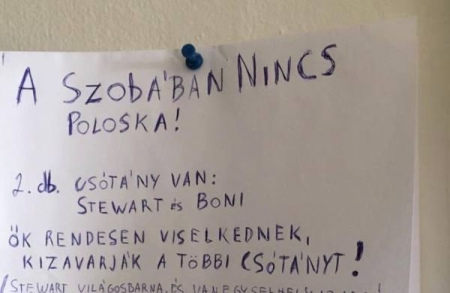 A SZOBÁBAN NINCS
POLOSKA!
2. db. CSÓTÁNY VAN:
STEWART és BONI
ŐK RENDESEN VISELKEDNEK,
KIZAVARJÁK A TÖBBI CSÓTÁNYT!
(STEWART VILÁGOSBARNA, ÉS VAN EGY